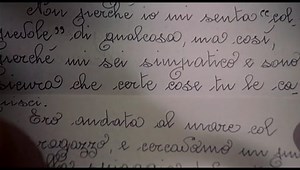 Non perché io mi senta "col
pevole" di qualcosa, ma così,
perché mi sei simpatico e sono
sicura che certe cose tu le ca
pisci.
Ero andata al mare col
ragazzo, e cercavamo un